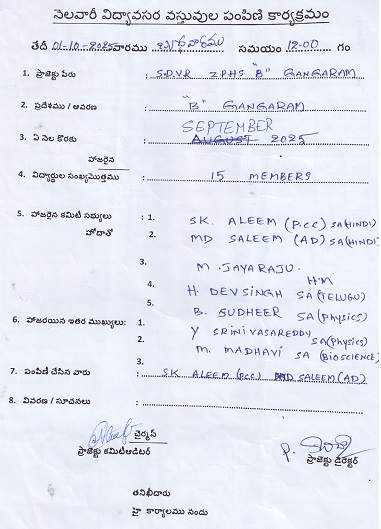 నెలవారీ విద్యావసర వస్తువుల పంపిణి కార్యక్రమం
తేదీ 01-10-2025 వారము బుధవారము సమయం 12:00 గం
1. ప్రాజెక్టు పేరు : S.D.V.R ZPHS "B" GANGARAM
2. ప్రదేశము / ఆవరణ : "B" GANGARAM
SEPTEMBER
3. ఏ నెల కొరకు : AUGUST 2025
హాజరైన
4. విద్యార్థుల సంఖ్యమొత్తము : 15 MEMBERS
5. హాజరైన కమిటి సభ్యులు : 1. SK. ALEEM (P.CC) SA(HINDI)
హోదాతో 2. MD SALEEM (AD) SA(HINDI)
3. M. JAYARAJU. H.M
4. H. DEVSINGH SA (TELUGU)
5. B. SUDHEER SA (Physics)
6. హాజరయిన ఇతర ముఖ్యులు: 1. Y SRINIVASAREDDY SA(Physics)
2. M. MADHAVI SA (BIOSCIENCE)
3.
7. పంపిణి చేసిన వారు : SK ALEEM (P.CC) MD SALEEM (AD)
8. వివరణ / సూచనలు :
చైర్మన్
ప్రాజెక్టు కమిటిఆడిటర్
ప్రాజెక్టు డైరెక్టర్
తనిఖీదారు
హై కార్యాలము నందు